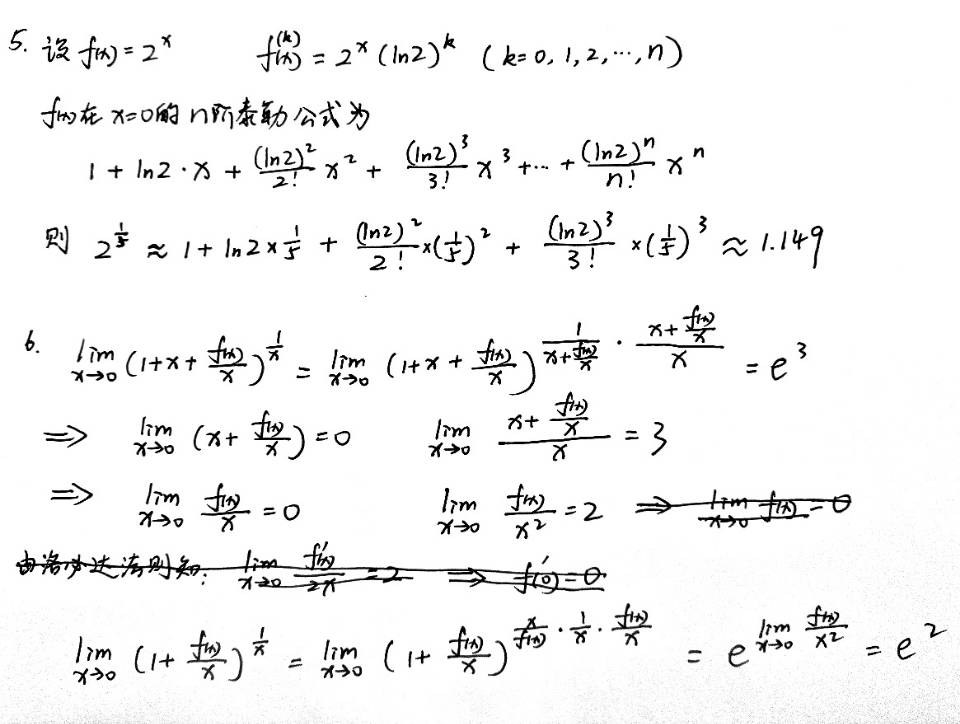 5. 设 f(x) = 2^x f^(k)(x) = 2^x (ln2)^k (k=0, 1, 2, ⋯, n)
f(x)在 x=0的 n阶泰勒公式为
1 + ln2·x + (ln2)^2/2! x^2 + (ln2)^3/3! x^3 + ⋯ + (ln2)^n/n! x^n
则 2^(1/5) ≈ 1 + ln2×1/5 + (ln2)^2/2! ×(1/5)^2 + (ln2)^3/3! ×(1/5)^3 ≈ 1.149
6. lim_{x→0} (1+x+f(x)/x)^(1/x) = lim_{x→0} (1+x+f(x)/x)^(1/(x+f(x)/x) · (x+f(x)/x)/x) = e^3
⇒ lim_{x→0} (x+f(x)/x) = 0 lim_{x→0} (x+f(x)/x)/x = 3
⇒ lim_{x→0} f(x)/x = 0 lim_{x→0} f(x)/x^2 = 2 ⇒ lim_{x→0} f(x) = 0
由洛必达法则知: lim_{x→0} f'(x)/2x = 2 ⇒ f'(0) = 0
lim_{x→0} (1+f(x)/x)^(1/x) = lim_{x→0} (1+f(x)/x)^(x/f(x) · 1/x · f(x)/x) = e^(lim_{x→0} f(x)/x^2) = e^2